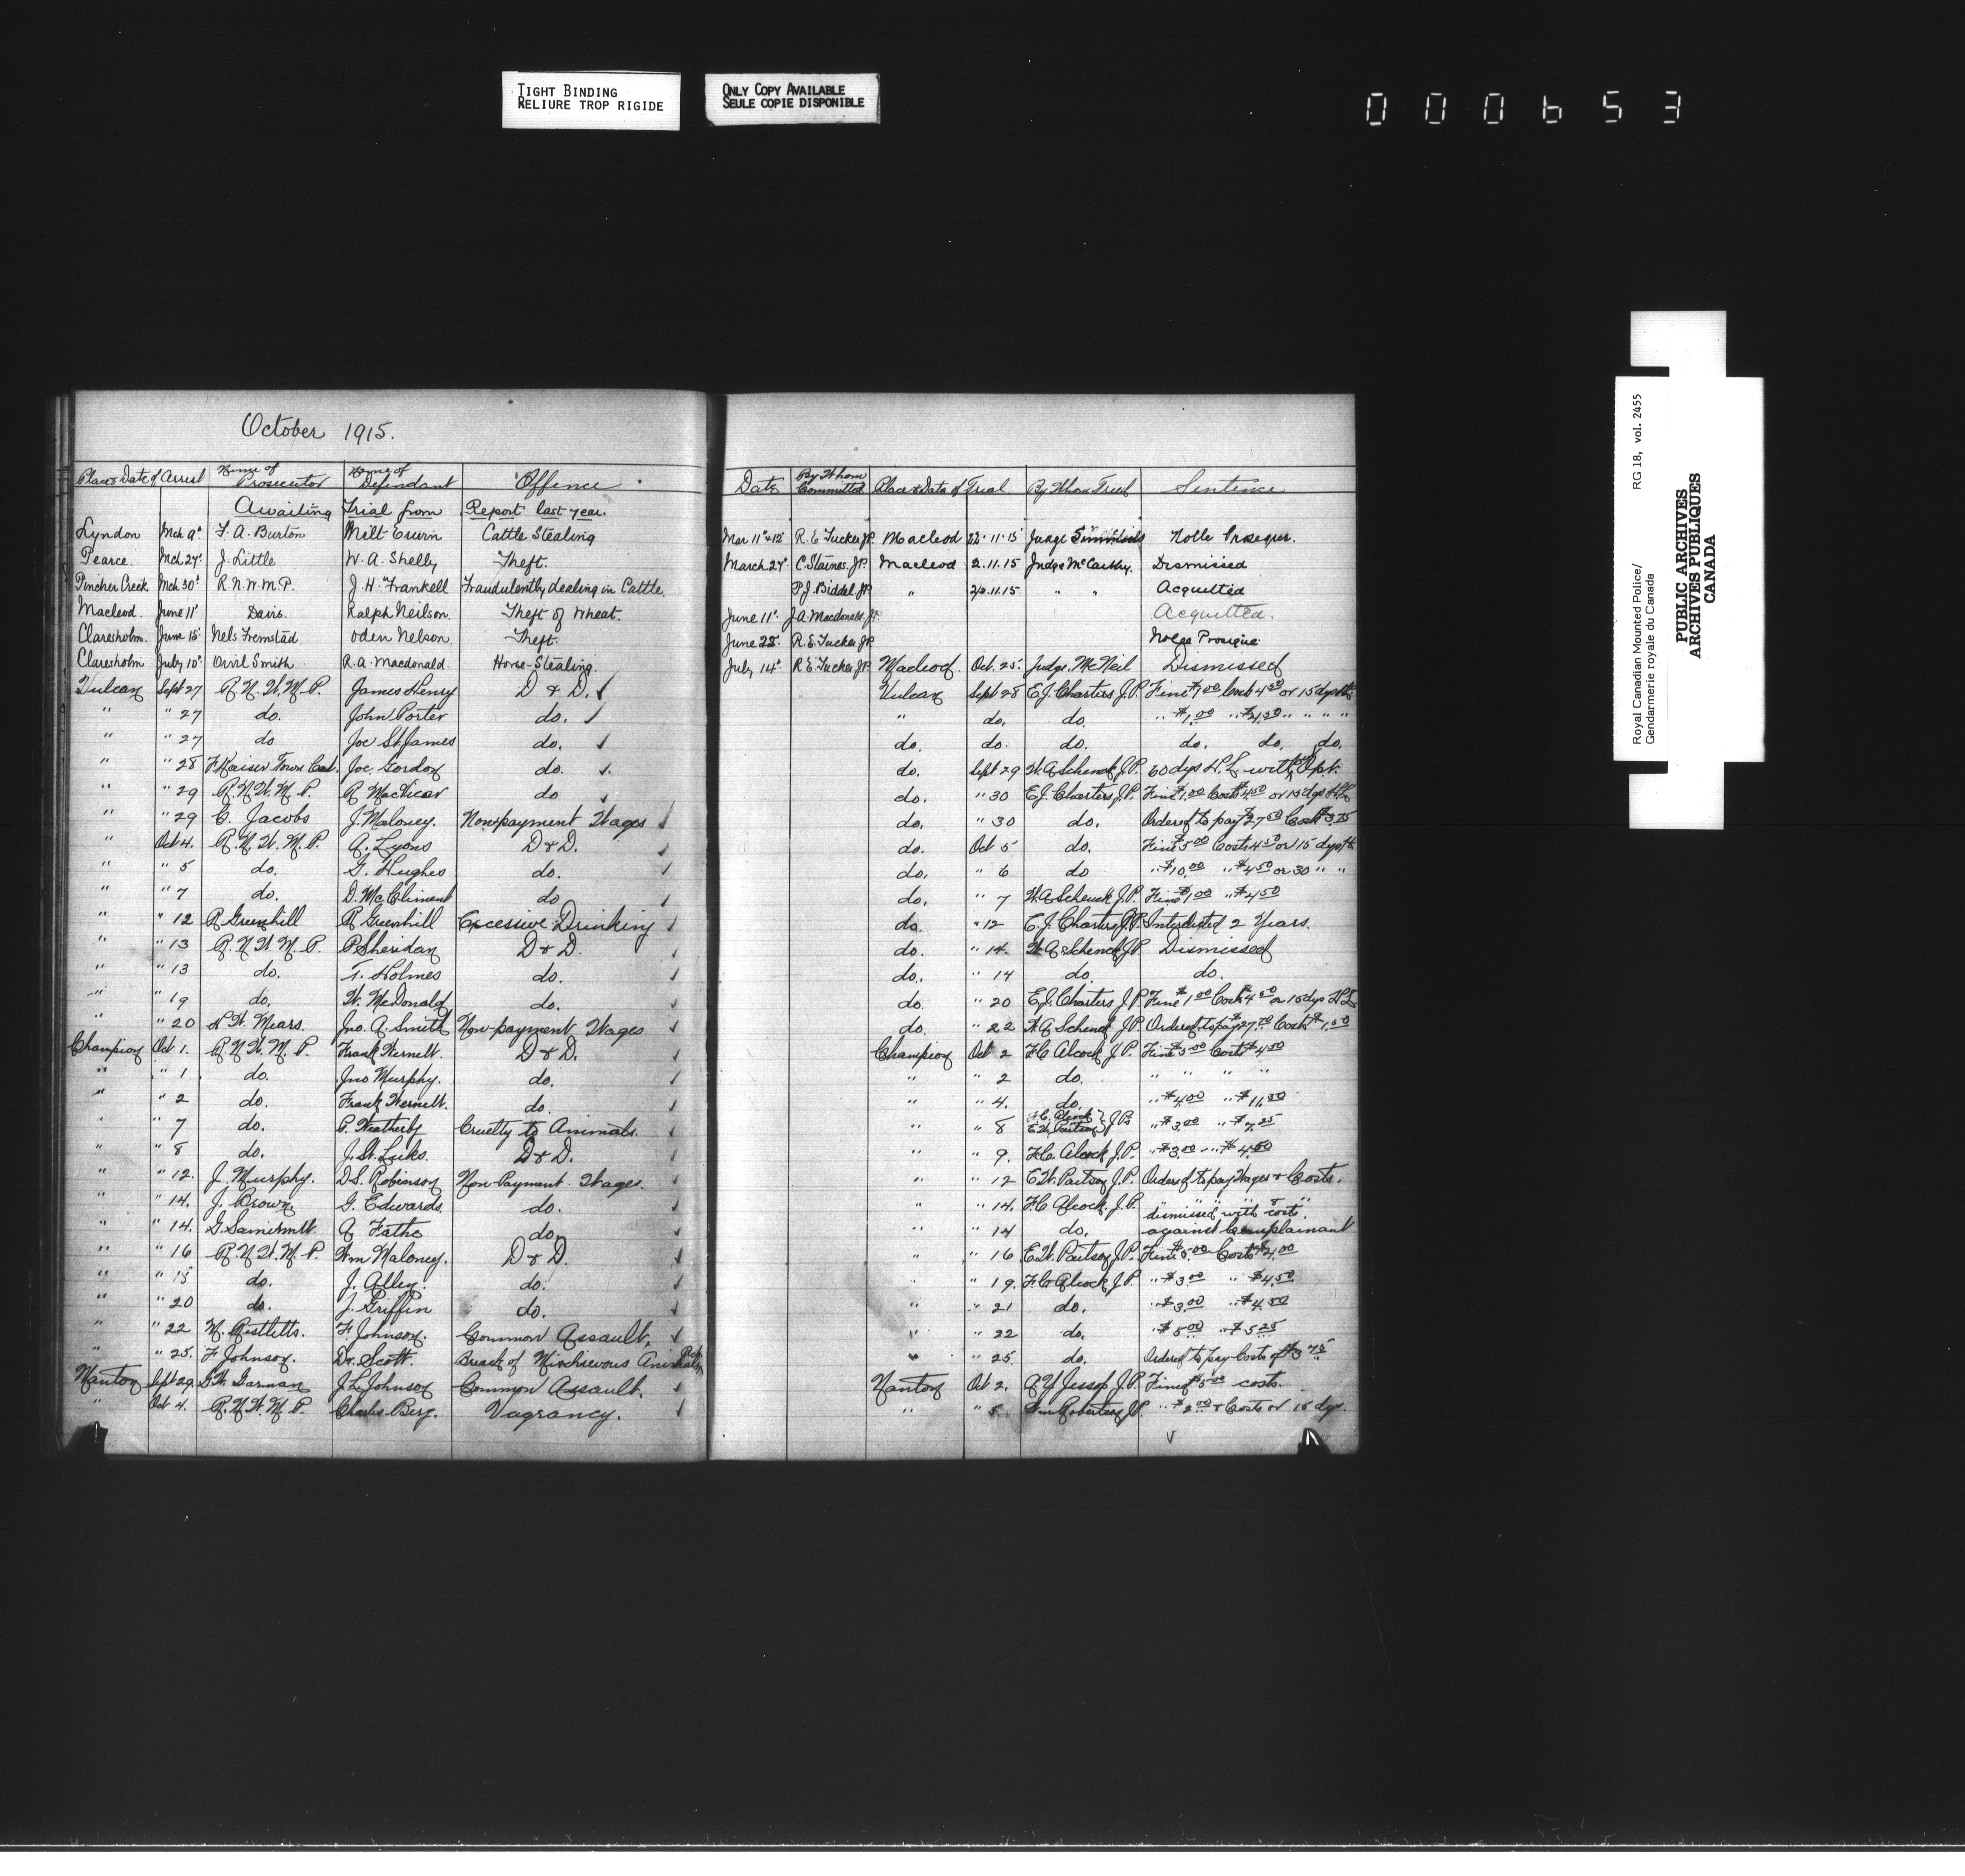 TIGHT BINDING
RELIURE TROP RIGIDE
ONLY COPY AVAILABLE
SEULE COPIE DISPONIBLE
000653
Royal Canadian Mounted Police/ RG 18, vol. 2455
Gendarmerie royale du Canada
PUBLIC ARCHIVES
ARCHIVES PUBLIQUES
CANADA
October 1915.
Place & Date of Arrest Name of Prosecutor Name of Defendant Offence Date By Whom Committed Place & Date of Trial By Whom Tried Sentence
Awaiting Trial from Report last year.
Lyndon Mch 9" F. A. Burton Milt Erwin Cattle Stealing Mar 11" & 12" R. E Tucker JP. Macleod 22-11-15 Judge Simmons Nolle Prosequi.
Pearce. Mch 24" J. Little W. A. Shelly Theft. March 24" C. Staines. JP. Macleod 2.11.15 Judge McCarthy. Dismissed
Pincher Creek Mch 30" R.N.W.M.P. J. H. Frankell Fraudulently dealing in Cattle. P.J. Biddel JP. " 2/2.11.15 " " Acquitted
Macleod. June 11" Davis. Ralph Neilson. Theft of Wheat. June 11" J.A. Macdonald. JP. Acquitted.
Claresholm. June 15" Nels Fremstad. Oden Nelson. Theft. June 22. R. E. Tucker JP.
Claresholm July 10" Orvil Smith R. A. Macdonald. Horse-Stealing. July 14" R. E. Tucker JP. Macleod. Oct. 25. Judge. McNeil Dismissed
Vulcan Sept 27 R.N.W.M.P. James Henry D & D. ✓ Vulcan Sept 28 E.J. Charters J.P. Fine $1.00 Cost 4.50 or 15 dys
" " 27 do. John Porter do. ✓ " do. do. " $1.00 " $4.50 " " " "
" " 27 do Joe St. James do. ✓ do. do. do. do. do. do.
" " 28 F Kaiser Town Const. Joe. Gordon do. ✓ do. Sept 29 W.A. Schenck J.P. 60 dys H.L. with Opt.
" " 29 R.N.W.M.P. R MacVicar do ✓ do. " 30 E.J. Charters J.P. Fine $1.00 Costs $4.50 or 15 dys H.L.
" " 29 C. Jacobs J. Maloney. Non-payment Wages ✓ do. " 30 do. Ordered to pay $27.50 Cost $3.75
" Oct 4. R.N.W.M.P. A. Lyons D & D. ✓ do. Oct 5 do. Fine $5.00 Costs 4.50 or 15 dys
" " 5 do. G. Hughes do. ✓ do. " 6 do " $10.00 " $4.50 or 30 " "
" " 7 do. D. McCliment do ✓ do. " 7 W.A. Schenck J.P. Fine $1.00 " $4.50
" " 12 R Greenhill R Greenhill Excessive Drinking ✓ do. " 12 E.J. Charters J.P. Interdicted 2 Years.
" " 13 R.N.W.M.P. P. Sheridan D & D. ✓ do. " 14. W.A. Schenck J.P. Dismissed
" " 13 do. T. Holmes do. ✓ do. " 14 do do.
" " 19 do. W. McDonald do. ✓ do. " 20 E.J. Charters J.P. Fine $1.00 Cost $4.50 or 15 dys H.L.
" " 20 H W. Mears. Jno. A. Smith Non-payment Wages ✓ do. " 22 W.A. Schenck J.P. Ordered to pay $27.70 Cost $1.50
Champion Oct 1. R.N.W.M.P. Frank Wernett. D & D. ✓ Champion Oct 2 F.C. Alcock J.P. Fine $3.00 Costs $4.50
" " 1 do. Jno Murphy. do. ✓ " " 2 do. " " " "
" " 2 do. Frank Wernett. do. ✓ " " 4. do. " $4.00 " $11.50
" " 7 do. P. Weatherby Cruelty to Animals. ✓ " " 8 F.C. Alcock E.W. Paitson } J.Ps " $3.00 " $7.25
" " 8 do. J. St. Luks. D & D. ✓ " " 9. F.C. Alcock J.P. " $3.00 " $4.50
" " 12. J. Murphy. D.S. Robinson Non-Payment Wages. ✓ " " 12 E.W. Paitson J.P. Ordered to pay Wages & Costs.
" " 14. J. Brown. G. Edwards. do. ✓ " " 14. F.C. Alcock. J.P. " " " & "
" " 14. A Fathe do. ✓ " " 14 do. dismissed with costs. against Complainant
" " 16 R.N.W.M.P. Wm Maloney. D & D. ✓ " " 16 E.W. Paitson J.P. Fine $5.00 Costs $4.00
" " 15 do. J. Alley. do. ✓ " " 19. F.C. Alcock J.P. " $3.00 " $4.50
" " 20 do. J. Griffin do. ✓ " " 21 do. " $3.00 " $4.50
" " 22 F. Johnson. Common Assault. ✓ " " 22 do. " $5.00 " $5.25
" " 25. F Johnson. Dr. Scott. Breach of Mischievous Animals ✓ " " 25. do. Ordered to pay Costs of $3.75
Nanton Sept 29 G.W. Garman J.L. Johnson Common Assault. ✓ Nanton Oct 2. A.Y. Jessop J.P. Fined $5.00 costs.
" Oct 4. R.N.W.M.P. Charles Berg. Vagrancy. ✓ " " 5. Wm Robertson J.P. " $2.00 & Costs or 15 dys.